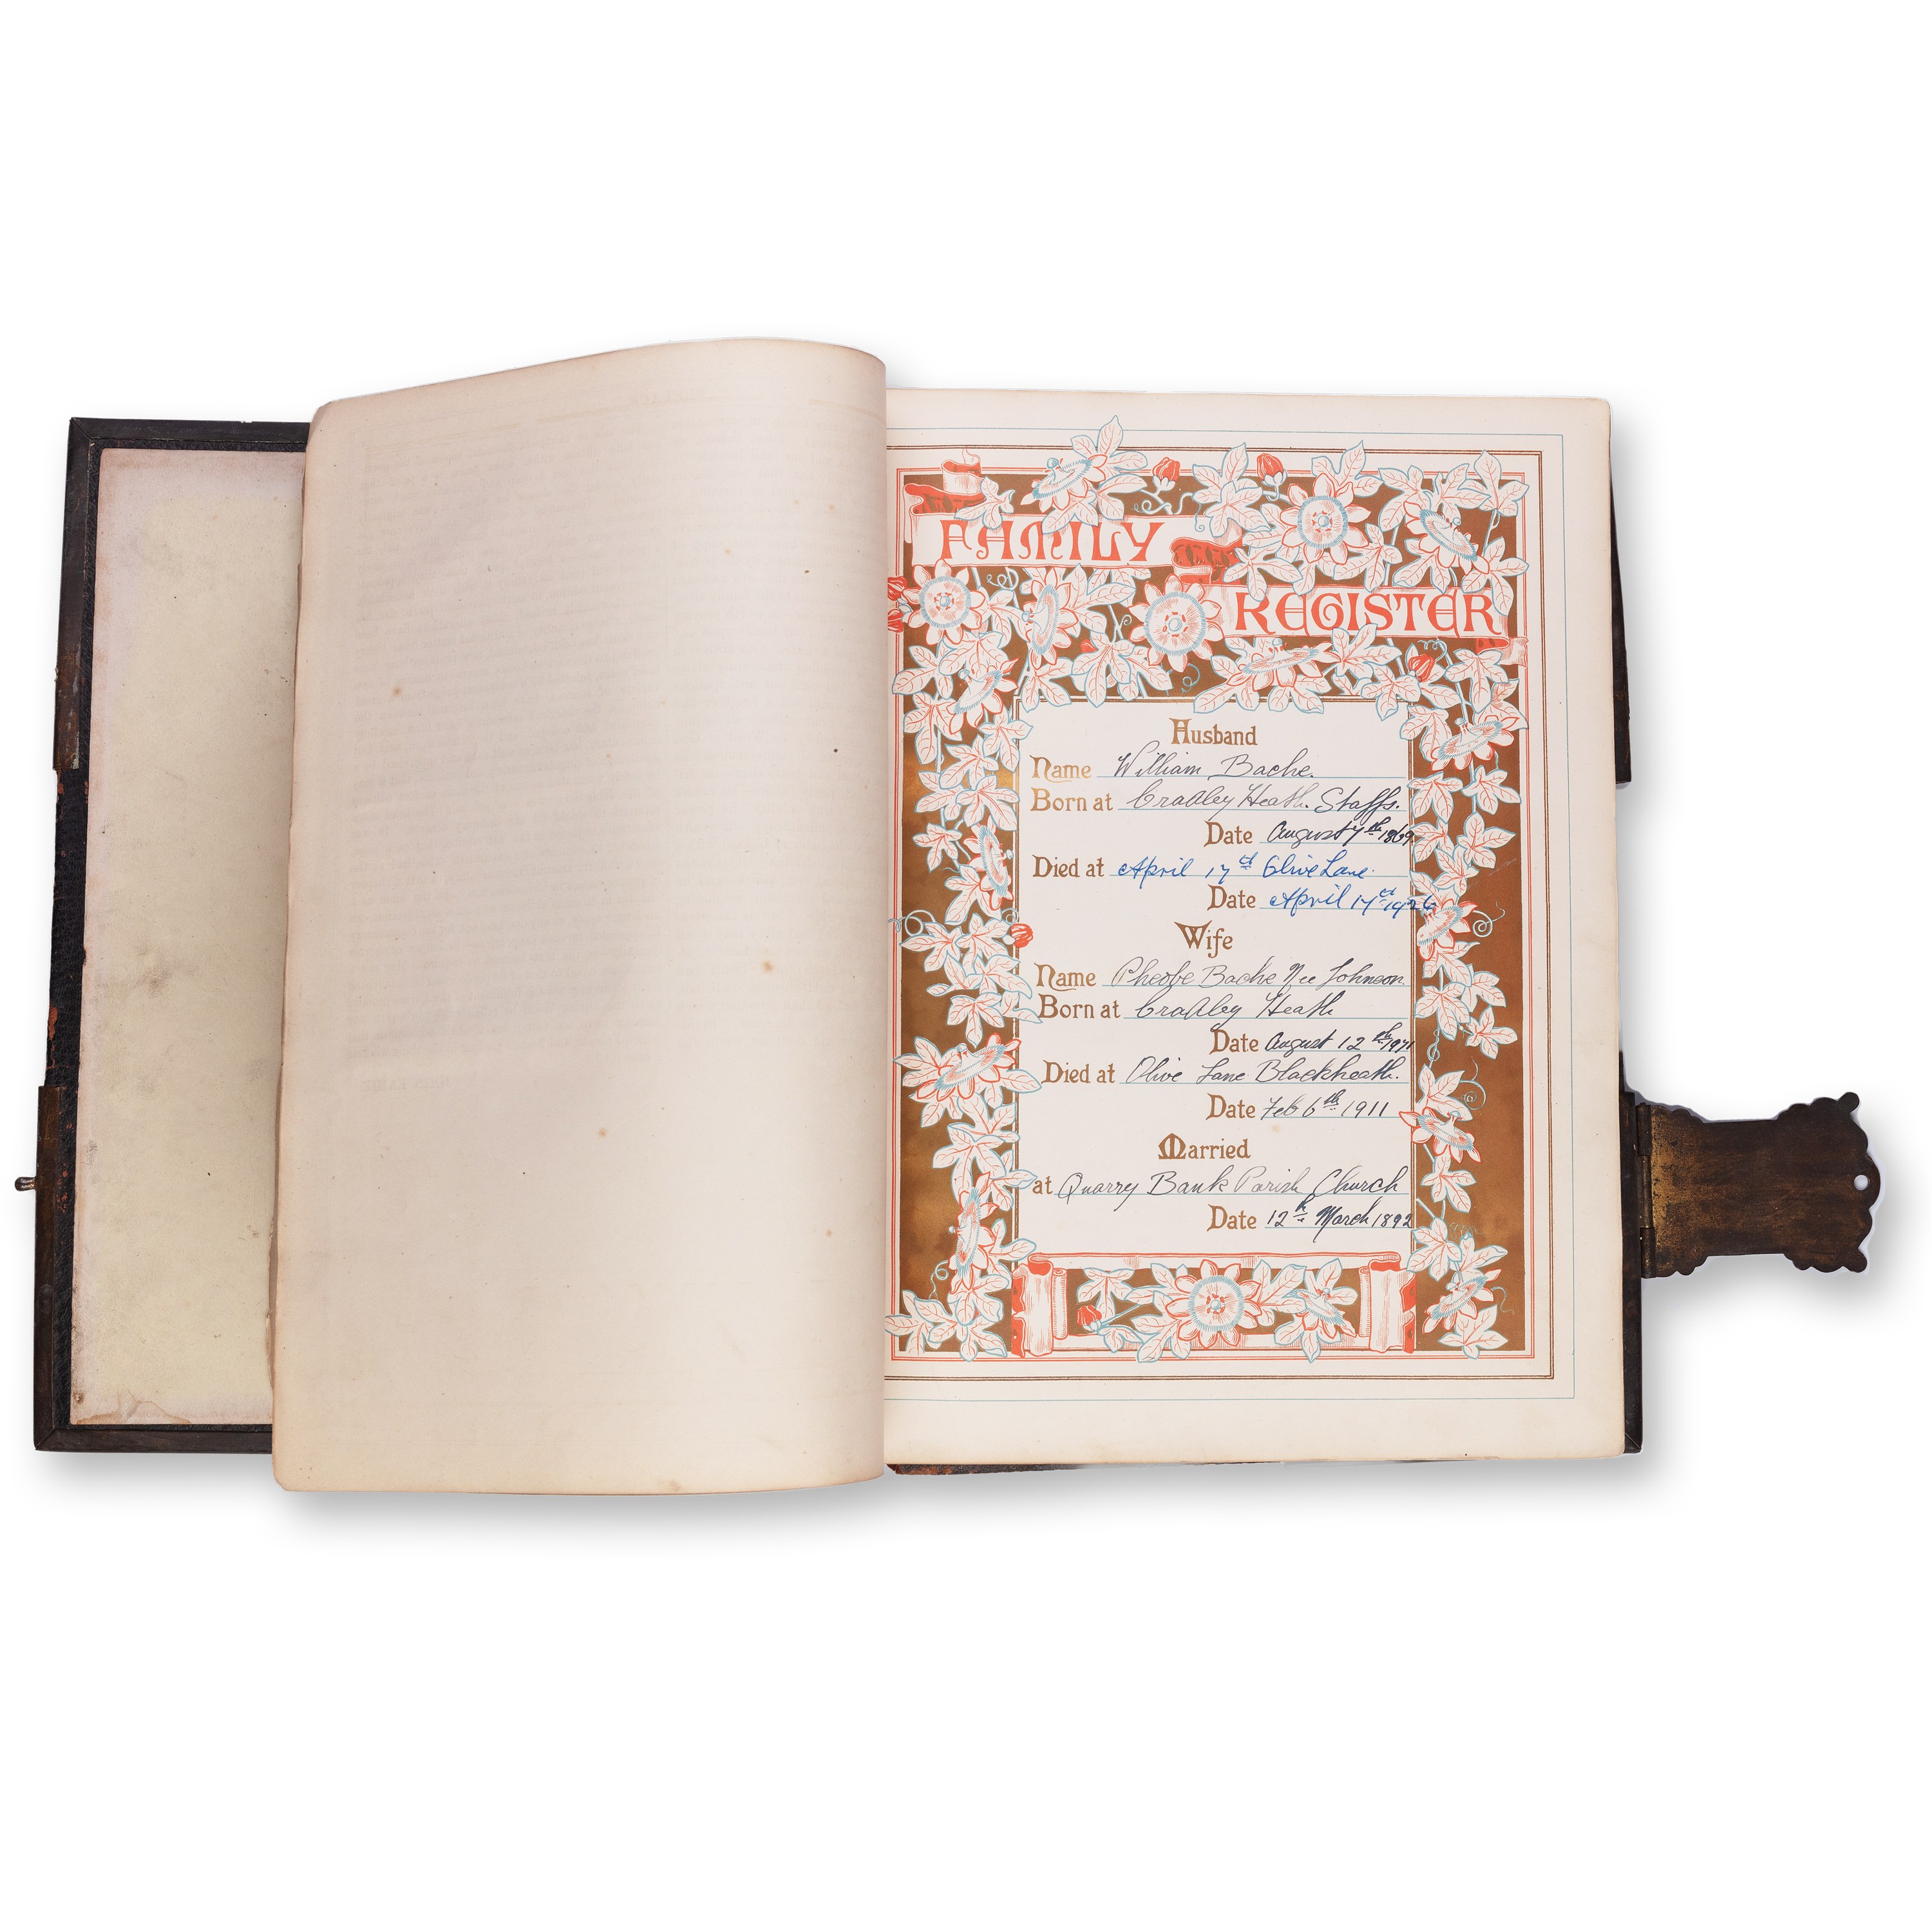 FAMILY
REGISTER
Husband
Name William Bache.
Born at Cradley Heath. Staffs.
Date August 7th 1869
Died at April 17th Olive Lane.
Date April 17th 1926
Wife
Name Pheobe Bache Nee Johnson
Born at Cradley Heath
Date August 12th 1971
Died at Olive Lane Blackheath.
Date Feb 6th 1911
Married
at Quarry Bank Parish Church
Date 12th March 1892